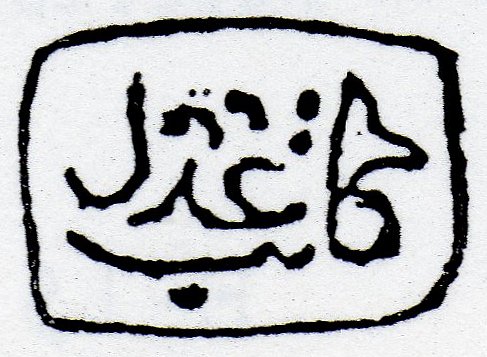 كاتب عدل